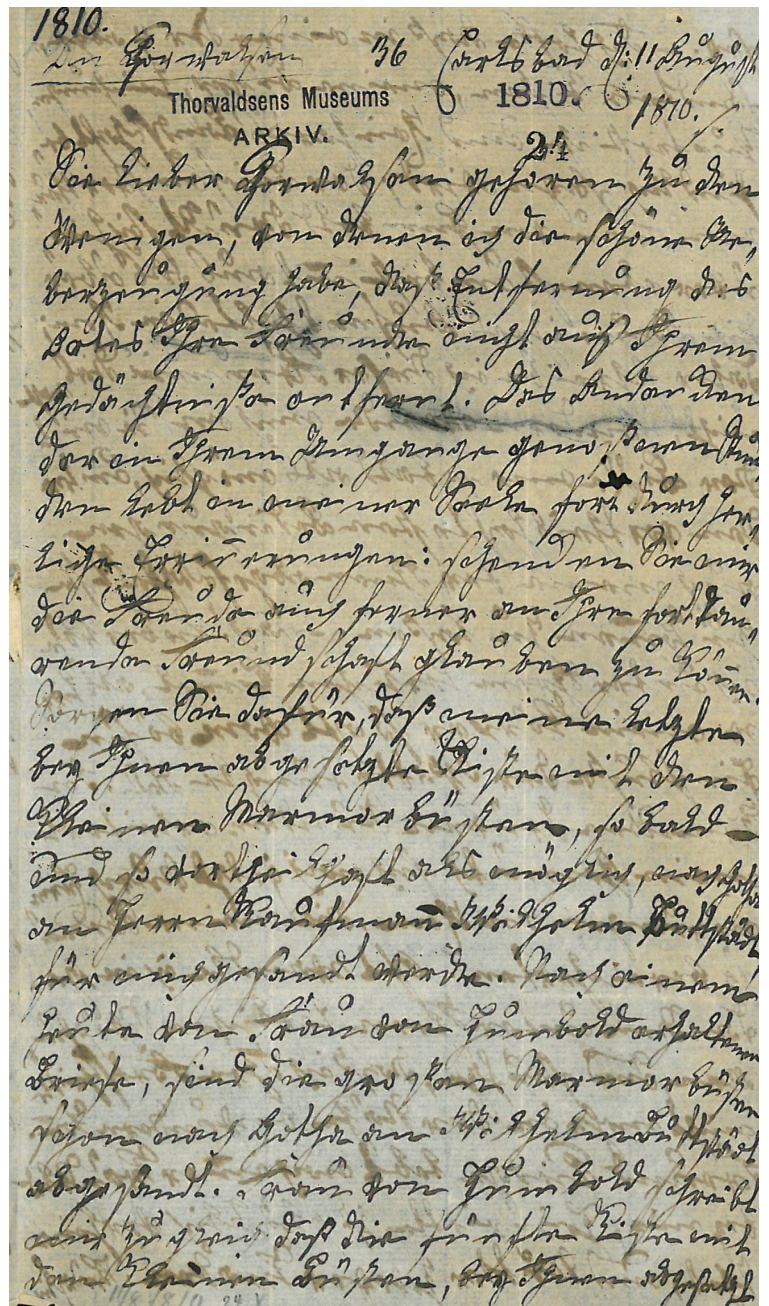 1810.
An Thorwalsen 36 Carlsbad d: 11 August
Thorvaldsens Museums 1810. 1810.
ARKIV.
24
Sie lieber Thorwalsen gehören zu den
Wenigen, von denen ich die schöne Ue„
berzeugung habe, daß Entfernung des
Ortes Ihre Freunde nicht aus Ihrem
Gedächtniße entfernt. Das Andenken
der in Ihrem Umgange genoßenen Stun„
den lebt in meiner Seele fort durch herr„
liche Erinnerungen: schenken Sie mir
die Freude auch ferner an Ihre fortdau„
rende Freundschaft glauben zu können.
Sorgen Sie dafür, daß meine letzte
bey Ihnen abgesetzte Kiste mit den
Kleinen Marmorbüsten, so bald
und so vortheilhaft als möglich, nach Gotha
an Herrn Kaufmann Wilhelm Buttstädt
für mich gesandt werde. Nach einem
heute von Frau von Humbold erhaltenen
Briefe, sind die großen Marmorbüsten
schon nach Gotha an Wilhelm Buttstädt
abgesandt. Frau von Humbold schreibt
mir zugleich daß die fünfte Kiste mit
den Kleinen Büsten, bey Ihnen abgesetzt